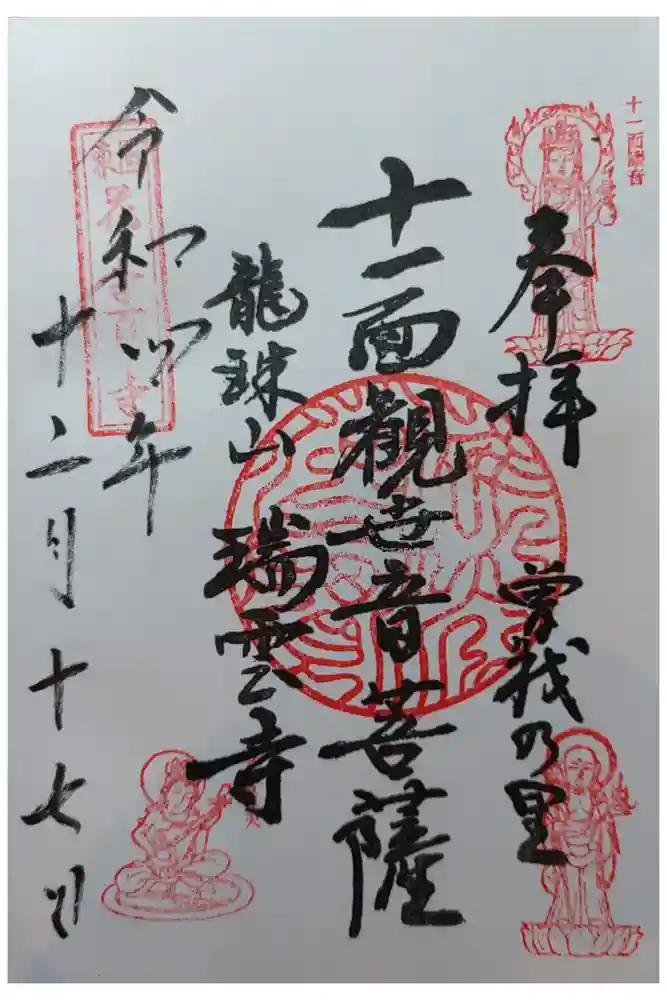 十一面観音
奉拝
曽我の里
十一面觀世音菩薩
龍珠山
瑞雲寺
令和四年
十二月十七日